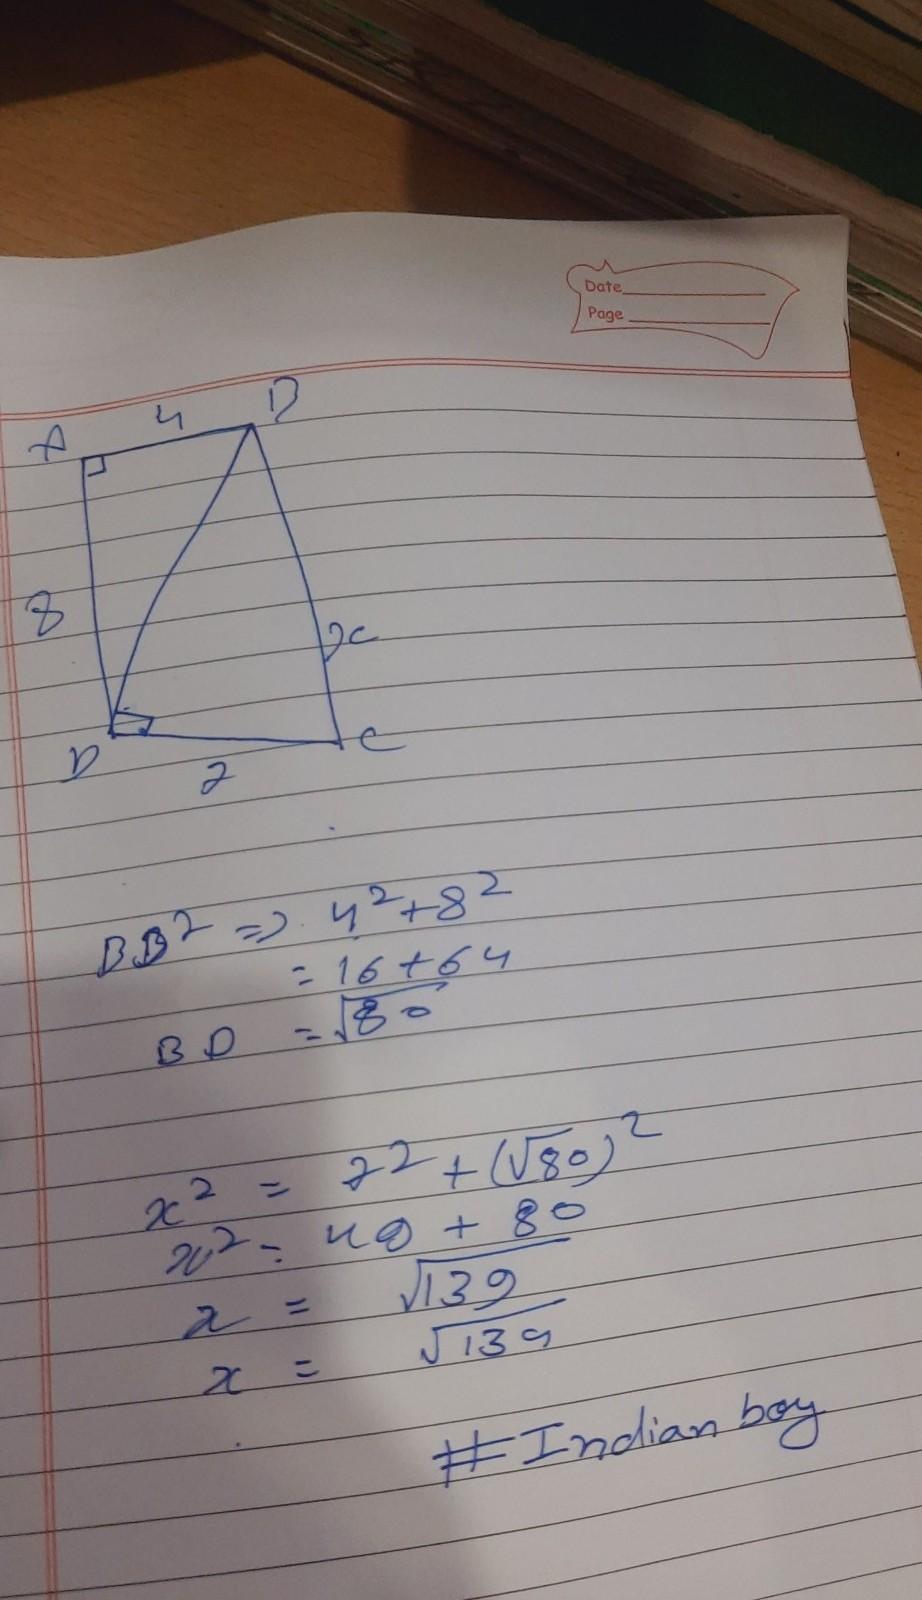 Date
Page
A 4 D
8 x
B 7 C
BD² => 4² + 8²
= 16 + 64
BD = √80
x² = 7² + (√80)²
x² = 49 + 80
x = √139
x = √139
# Indian boy